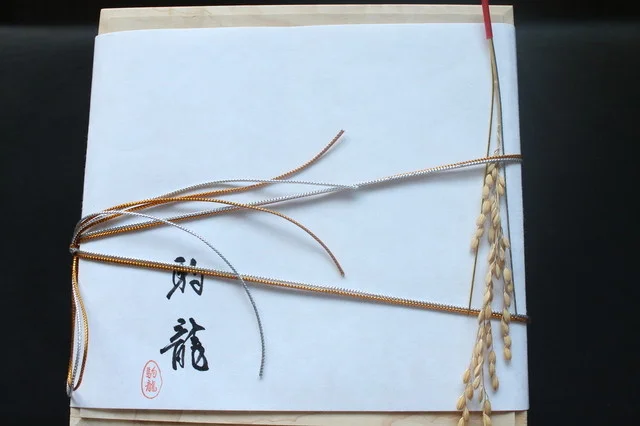 駒龍
駒龍